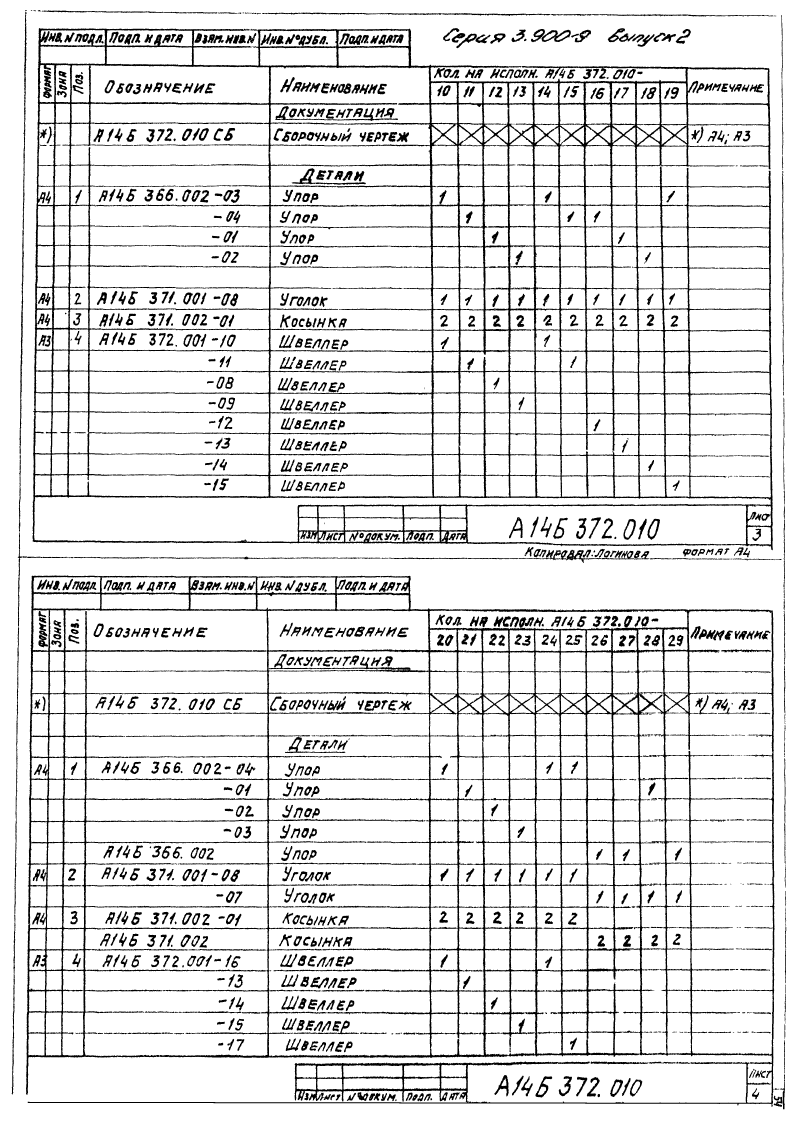 Серия 3.900-9 Выпуск 2
Инв. № подл. Подп. и дата Взам. инв. № Инв. № дубл. Подп. и дата
Формат Зона Поз. Обозначение Наименование Кол. на исполн. А14Б 372.010- Примечание
10 11 12 13 14 15 16 17 18 19
Документация
*) А14Б 372.010 СБ Сборочный чертеж *) А4; А3
Детали
А4 1 А14Б 366.002-03 Упор 1 1 1
-04 Упор 1 1 1
-01 Упор 1 1
-02 Упор 1 1
А4 2 А14Б 371.001-08 Уголок 1 1 1 1 1 1 1 1 1 1
А4 3 А14Б 371.002-01 Косынка 2 2 2 2 2 2 2 2 2 2
А3 4 А14Б 372.001-10 Швеллер 1 1
-11 Швеллер 1 1
-08 Швеллер 1
-09 Швеллер 1
-12 Швеллер 1
-13 Швеллер 1
-14 Швеллер 1
-15 Швеллер 1
Изм Лист № докум. Подп. Дата А14Б 372.010 Лист 3
Копировал: Логинова Формат А4
Инв. № подл. Подп. и дата Взам. инв. № Инв. № дубл. Подп. и дата
Формат Зона Поз. Обозначение Наименование Кол. на исполн. А14Б 372.010- Примечание
20 21 22 23 24 25 26 27 28 29
Документация
*) А14Б 372.010 СБ Сборочный чертеж *) А4; А3
Детали
А4 1 А14Б 366.002-04 Упор 1 1 1
-01 Упор 1 1
-02 Упор 1
-03 Упор 1
А14Б 366.002 Упор 1 1 1
А4 2 А14Б 371.001-08 Уголок 1 1 1 1 1 1
-07 Уголок 1 1 1 1
А4 3 А14Б 371.002-01 Косынка 2 2 2 2 2 2
А14Б 371.002 Косынка 2 2 2 2
А3 4 А14Б 372.001-16 Швеллер 1 1
-13 Швеллер 1
-14 Швеллер 1
-15 Швеллер 1
-17 Швеллер 1
Изм Лист № докум. Подп. Дата А14Б 372.010 Лист 4
54